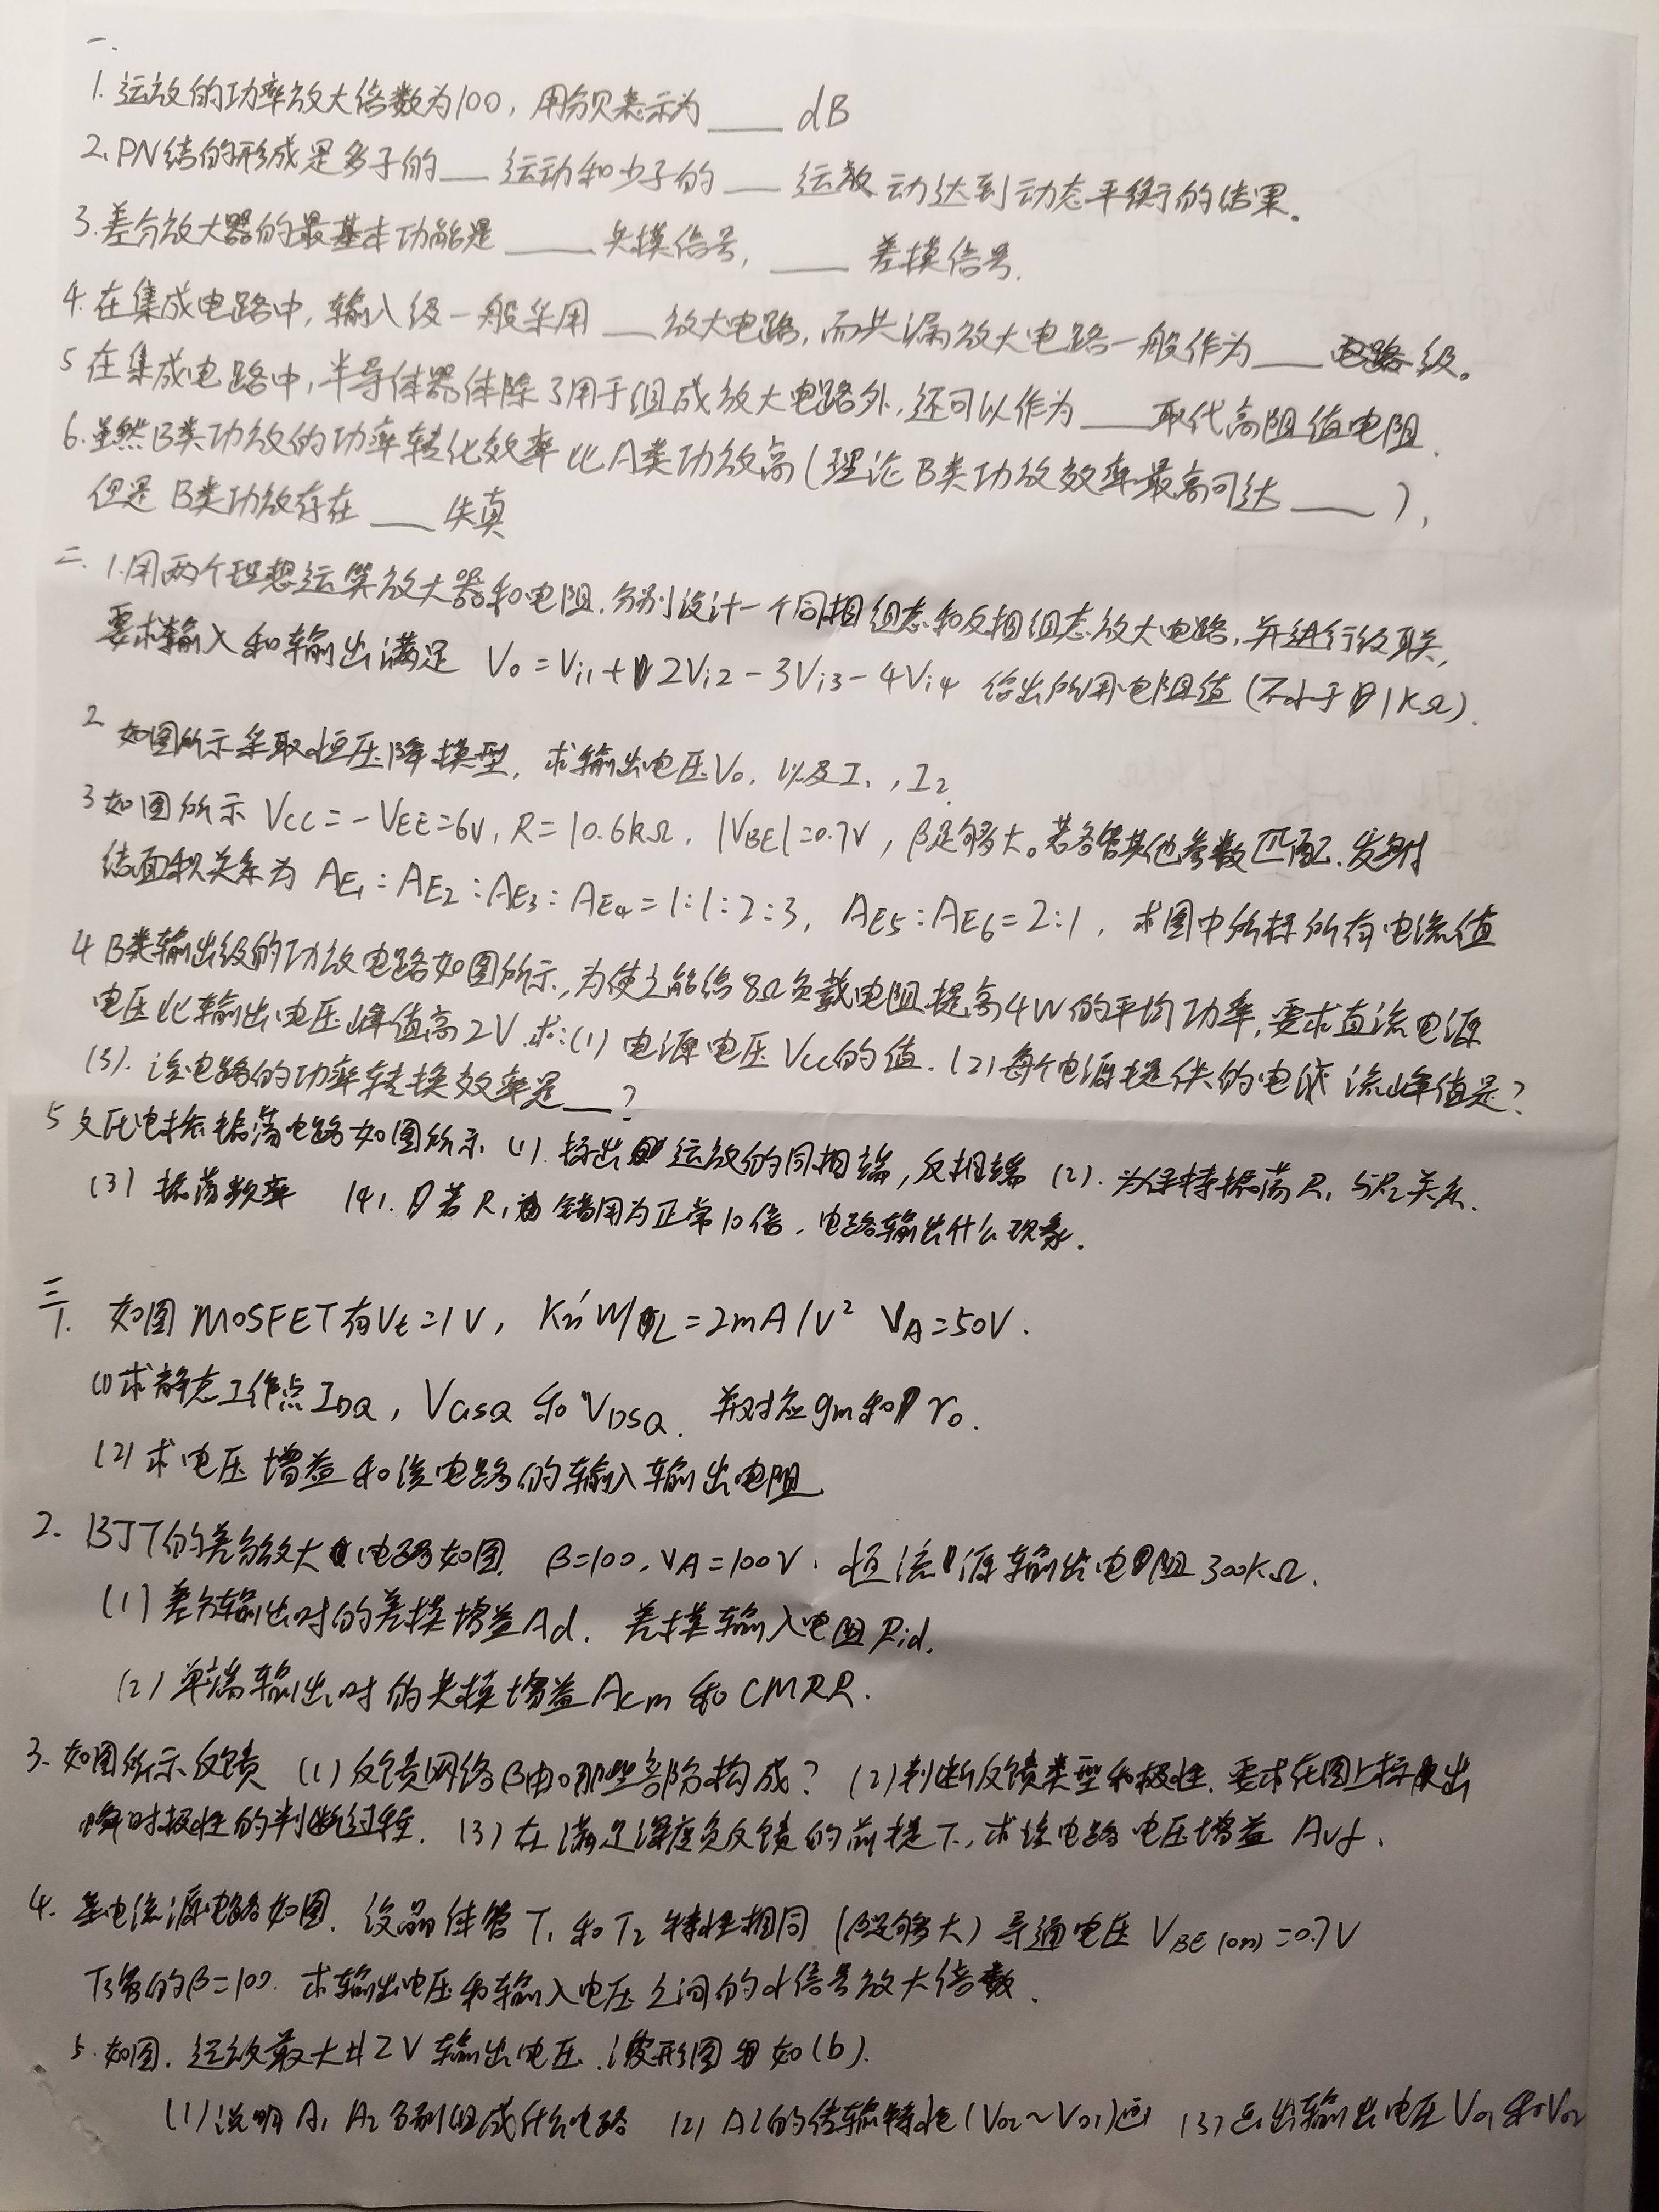 一.
1. 运放的功率放大倍数为100, 用分贝表示为____ dB
2. PN结的形成是多子的__运动和少子的__运动达到动态平衡的结果。
3. 差分放大器的最基本功能是____共模信号, ____差模信号.
4. 在集成电路中, 输入级一般采用__放大电路, 而共漏放大电路一般作为___级。
5 在集成电路中, 半导体器件除了用于组成放大电路外, 还可以作为___取代高阻值电阻.
6. 虽然B类功放的功率转化效率比A类功放高(理论B类功放效率最高可达____),
但是B类功放存在___失真
二. 1. 用两个理想运算放大器和电阻, 分别设计一个同相组态和反相组态放大电路, 并进行级联,
要求输入和输出满足 Vo=Vi1+2Vi2-3Vi3-4Vi4 给出所用电阻值(不小于1kΩ).
2 如图所示采取恒压降模型, 求输出电压Vo, 以及I1, I2.
3 如图所示 VCC=-VEE=6V, R=10.6kΩ, |VBE|=0.7V, β足够大。若各管其他参数匹配, 发射
结面积关系为 AE1:AE2:AE3:AE4=1:1:2:3, AE5:AE6=2:1, 求图中所标所有电流值
4 B类输出级的功放电路如图所示, 为使之能给8Ω负载电阻提高4W的平均功率, 要求直流电源
电压比输出电压峰值高2V. 求:(1) 电源电压Vcc的值. (2) 每个电源提供的电流峰值是?
(3). 该电路的功率转换效率是__?
5 文氏电桥振荡电路如图所示 (1). 标出运放的同相端, 反相端 (2). 为保持振荡R1与R2关系.
(3) 振荡频率 (4). 若R1错用为正常10倍, 电路输出什么现象.
三
1. 如图 MOSFET有Vt=1V, Kn'W/L=2mA/V² VA=50V.
(1) 求静态工作点IDQ, VGSQ和VDSQ. 并对应gm和ro.
(2) 求电压增益和该电路的输入输出电阻
2. BJT的差分放大电路如图. β=100, VA=100V, 恒流源输出电阻300kΩ.
(1) 差分输出时的差模增益Ad. 差模输入电阻Rid.
(2) 单端输出时的共模增益Acm和CMRR.
3. 如图所示反馈 (1) 反馈网络β由哪些部分构成? (2) 判断反馈类型和极性. 要求在图上标出
瞬时极性的判断过程. (3) 在满足深度负反馈的前提下, 求该电路电压增益 Avf.
4. 基电流源电路如图. 设晶体管T1和T2特性相同 (β足够大) 导通电压 VBE(on)=0.7V
T3管的β=100. 求输出电压和输入电压之间的小信号放大倍数.
5. 如图. 运放最大±12V输出电压. 波形图如(b).
(1) 说明A1 A2分别组成什么电路 (2) A2的传输特性(Vo2~Vo1)画 (3) 画出输出电压Vo1和Vo2